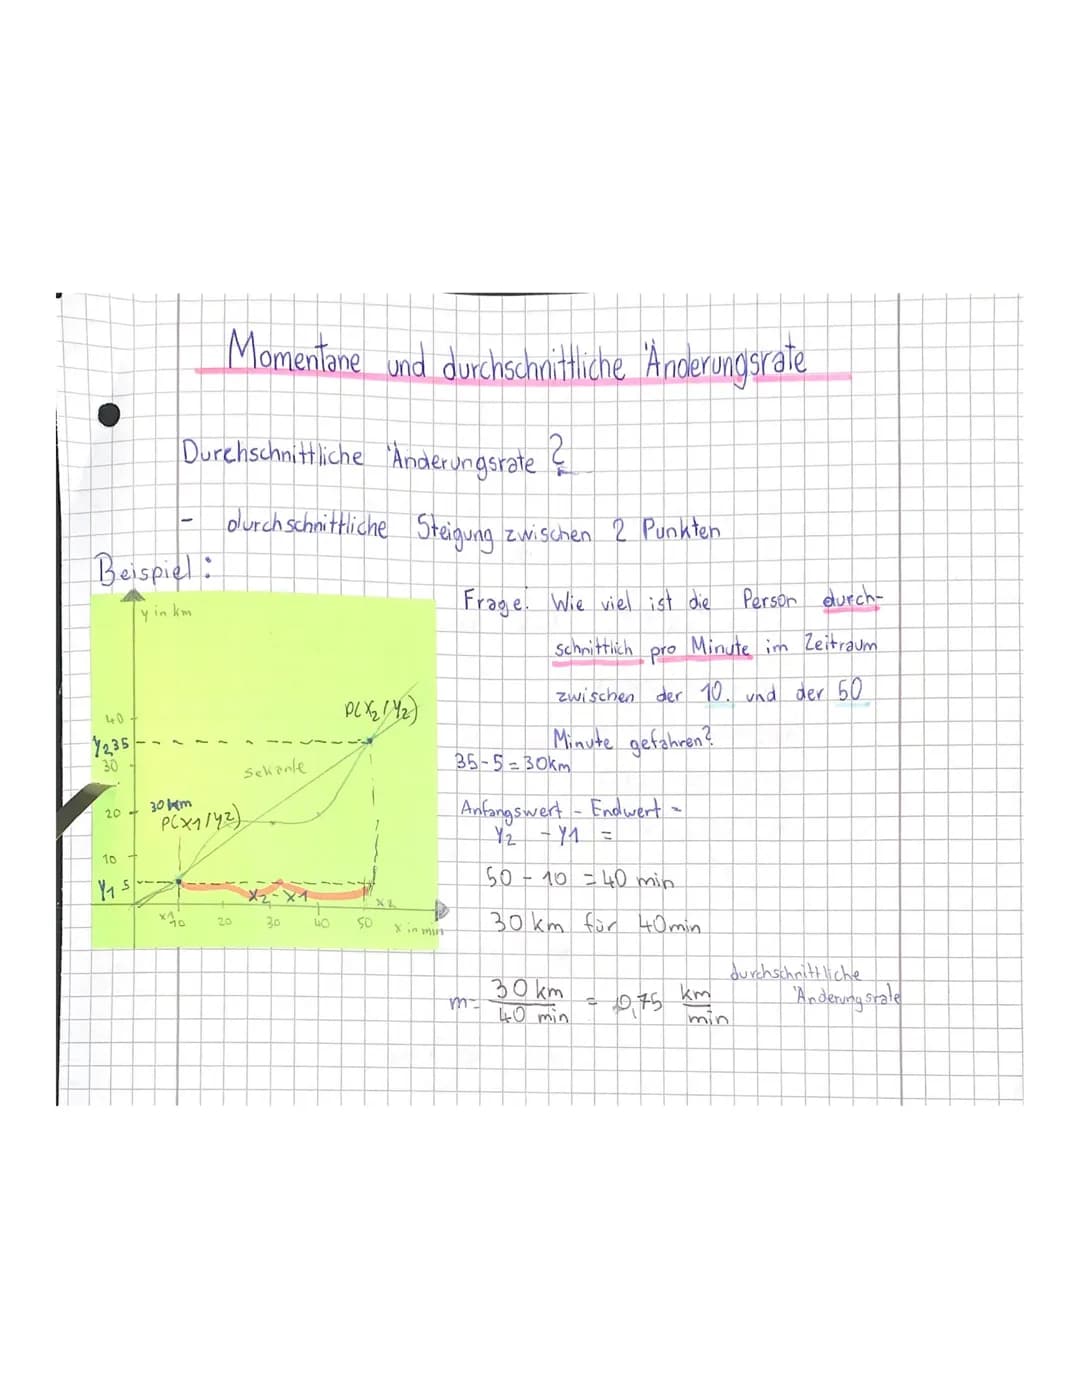 Momentane und durchschnittliche Änderungsrate
Durchschnittliche Änderungsrate ?
- durchschnittliche Steigung zwischen 2 Punkten
Beispiel:
y in km
P(X2/Y2)
40
Y2 35
30
Sekante
20
30 km
P(X1/Y2)
10
Y1 5
X2-X1
X2
X1
10 20 30 40 50 x in min
Frage: Wie viel ist die Person durch-
schnittlich pro Minute im Zeitraum
zwischen der 10. und der 50
Minute gefahren?
35-5=30km
Anfangswert - Endwert =
Y2 - Y1 =
50 - 10 = 40 min
30 km für 40min
m= 30 km / 40 min = 0,75 km/min
durchschnittliche
Änderungsrate